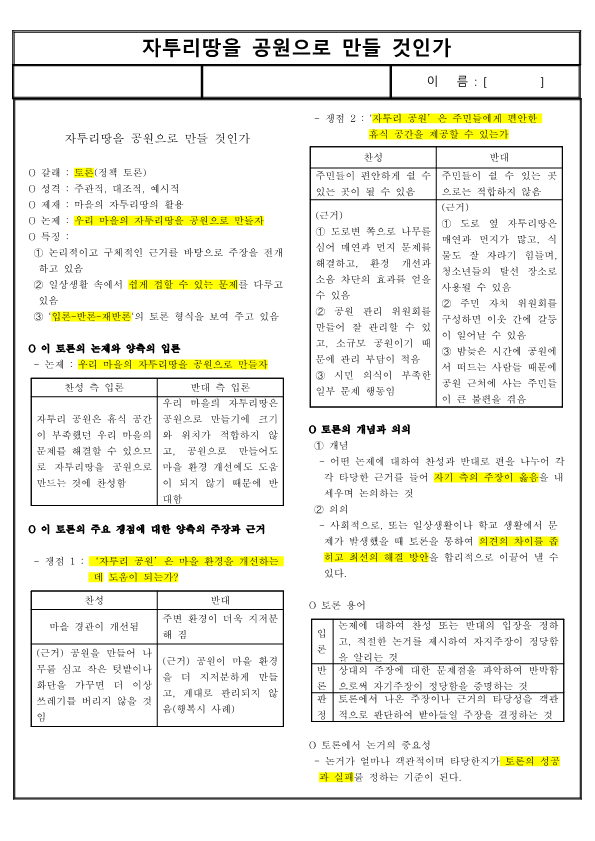 자투리땅을 공원으로 만들 것인가
이 름 : [ ]
자투리땅을 공원으로 만들 것인가
O 갈래 : 토론(정책 토론)
O 성격 : 주관적, 대조적, 예시적
O 제재 : 마을의 자투리땅의 활용
O 논제 : 우리 마을의 자투리땅을 공원으로 만들자
O 특징 :
① 논리적이고 구체적인 근거를 바탕으로 주장을 전개
하고 있음
② 일상생활 속에서 쉽게 접할 수 있는 문제를 다루고
있음
③ '입론-반론-재반론'의 토론 형식을 보여 주고 있음
O 이 토론의 논제와 양측의 입론
- 논제 : 우리 마을의 자투리땅을 공원으로 만들자
찬성 측 입론
반대 측 입론
자투리 공원은 휴식 공간
이 부족했던 우리 마을의
문제를 해결할 수 있으므
로 자투리땅을 공원으로
만드는 것에 찬성함
우리 마을의 자투리땅은
공원으로 만들기에 크기
와 위치가 적합하지 않
고, 공원으로 만들어도
마을 환경 개선에도 도움
이 되지 않기 때문에 반
대함
O 이 토론의 주요 쟁점에 대한 양측의 주장과 근거
- 쟁점 1 : '자투리 공원' 은 마을 환경을 개선하는
데 도움이 되는가?
찬성
반대
마을 경관이 개선됨
주변 환경이 더욱 지저분
해 짐
(근거) 공원을 만들어 나
무를 심고 작은 텃밭이나
화단을 가꾸면 더 이상
쓰레기를 버리지 않을 것
임
(근거) 공원이 마을 환경
을 더 지저분하게 만들
고, 제대로 관리되지 않
음(행복시 사례)
- 쟁점 2 : '자투리 공원' 은 주민들에게 편안한
휴식 공간을 제공할 수 있는가
찬성
반대
주민들이 편안하게 쉴 수
있는 곳이 될 수 있음
주민들이 쉴 수 있는 곳
으로는 적합하지 않음
(근거)
① 도로변 쪽으로 나무를
심어 매연과 먼지 문제를
해결하고, 환경 개선과
소음 차단의 효과를 얻을
수 있음
② 공원 관리 위원회를
만들어 잘 관리할 수 있
고, 소규모 공원이기 때
문에 관리 부담이 적음
③ 시민 의식이 부족한
일부 문제 행동임
(근거)
① 도로 옆 자투리땅은
매연과 먼지가 많고, 식
물도 잘 자라기 힘들며,
청소년들의 탈선 장소로
사용될 수 있음
② 주민 자치 위원회를
구성하면 이웃 간에 갈등
이 일어날 수 있음
③ 밤늦은 시간에 공원에
서 떠드는 사람들 때문에
공원 근처에 사는 주민들
이 큰 불편을 겪음
O 토론의 개념과 의의
① 개념
- 어떤 논제에 대하여 찬성과 반대로 편을 나누어 각
각 타당한 근거를 들어 자기 측의 주장이 옳음을 내
세우며 논의하는 것
② 의의
- 사회적으로, 또는 일상생활이나 학교 생활에서 문
제가 발생했을 때 토론을 통하여 의견의 차이를 좁
히고 최선의 해결 방안을 합리적으로 이끌어 낼 수
있다.
O 토론 용어
입론
논제에 대하여 찬성 또는 반대의 입장을 정하
고, 적절한 논거를 제시하여 자지주장이 정당함
을 알리는 것
반론
상대의 주장에 대한 문제점을 파악하여 반박함
으로써 자기주장이 정당함을 증명하는 것
판정
토론에서 나온 주장이나 근거의 타당성을 객관
적으로 판단하여 받아들일 주장을 결정하는 것
O 토론에서 논거의 중요성
- 논거가 얼마나 객관적이며 타당한지가 토론의 성공
과 실패를 정하는 기준이 된다.